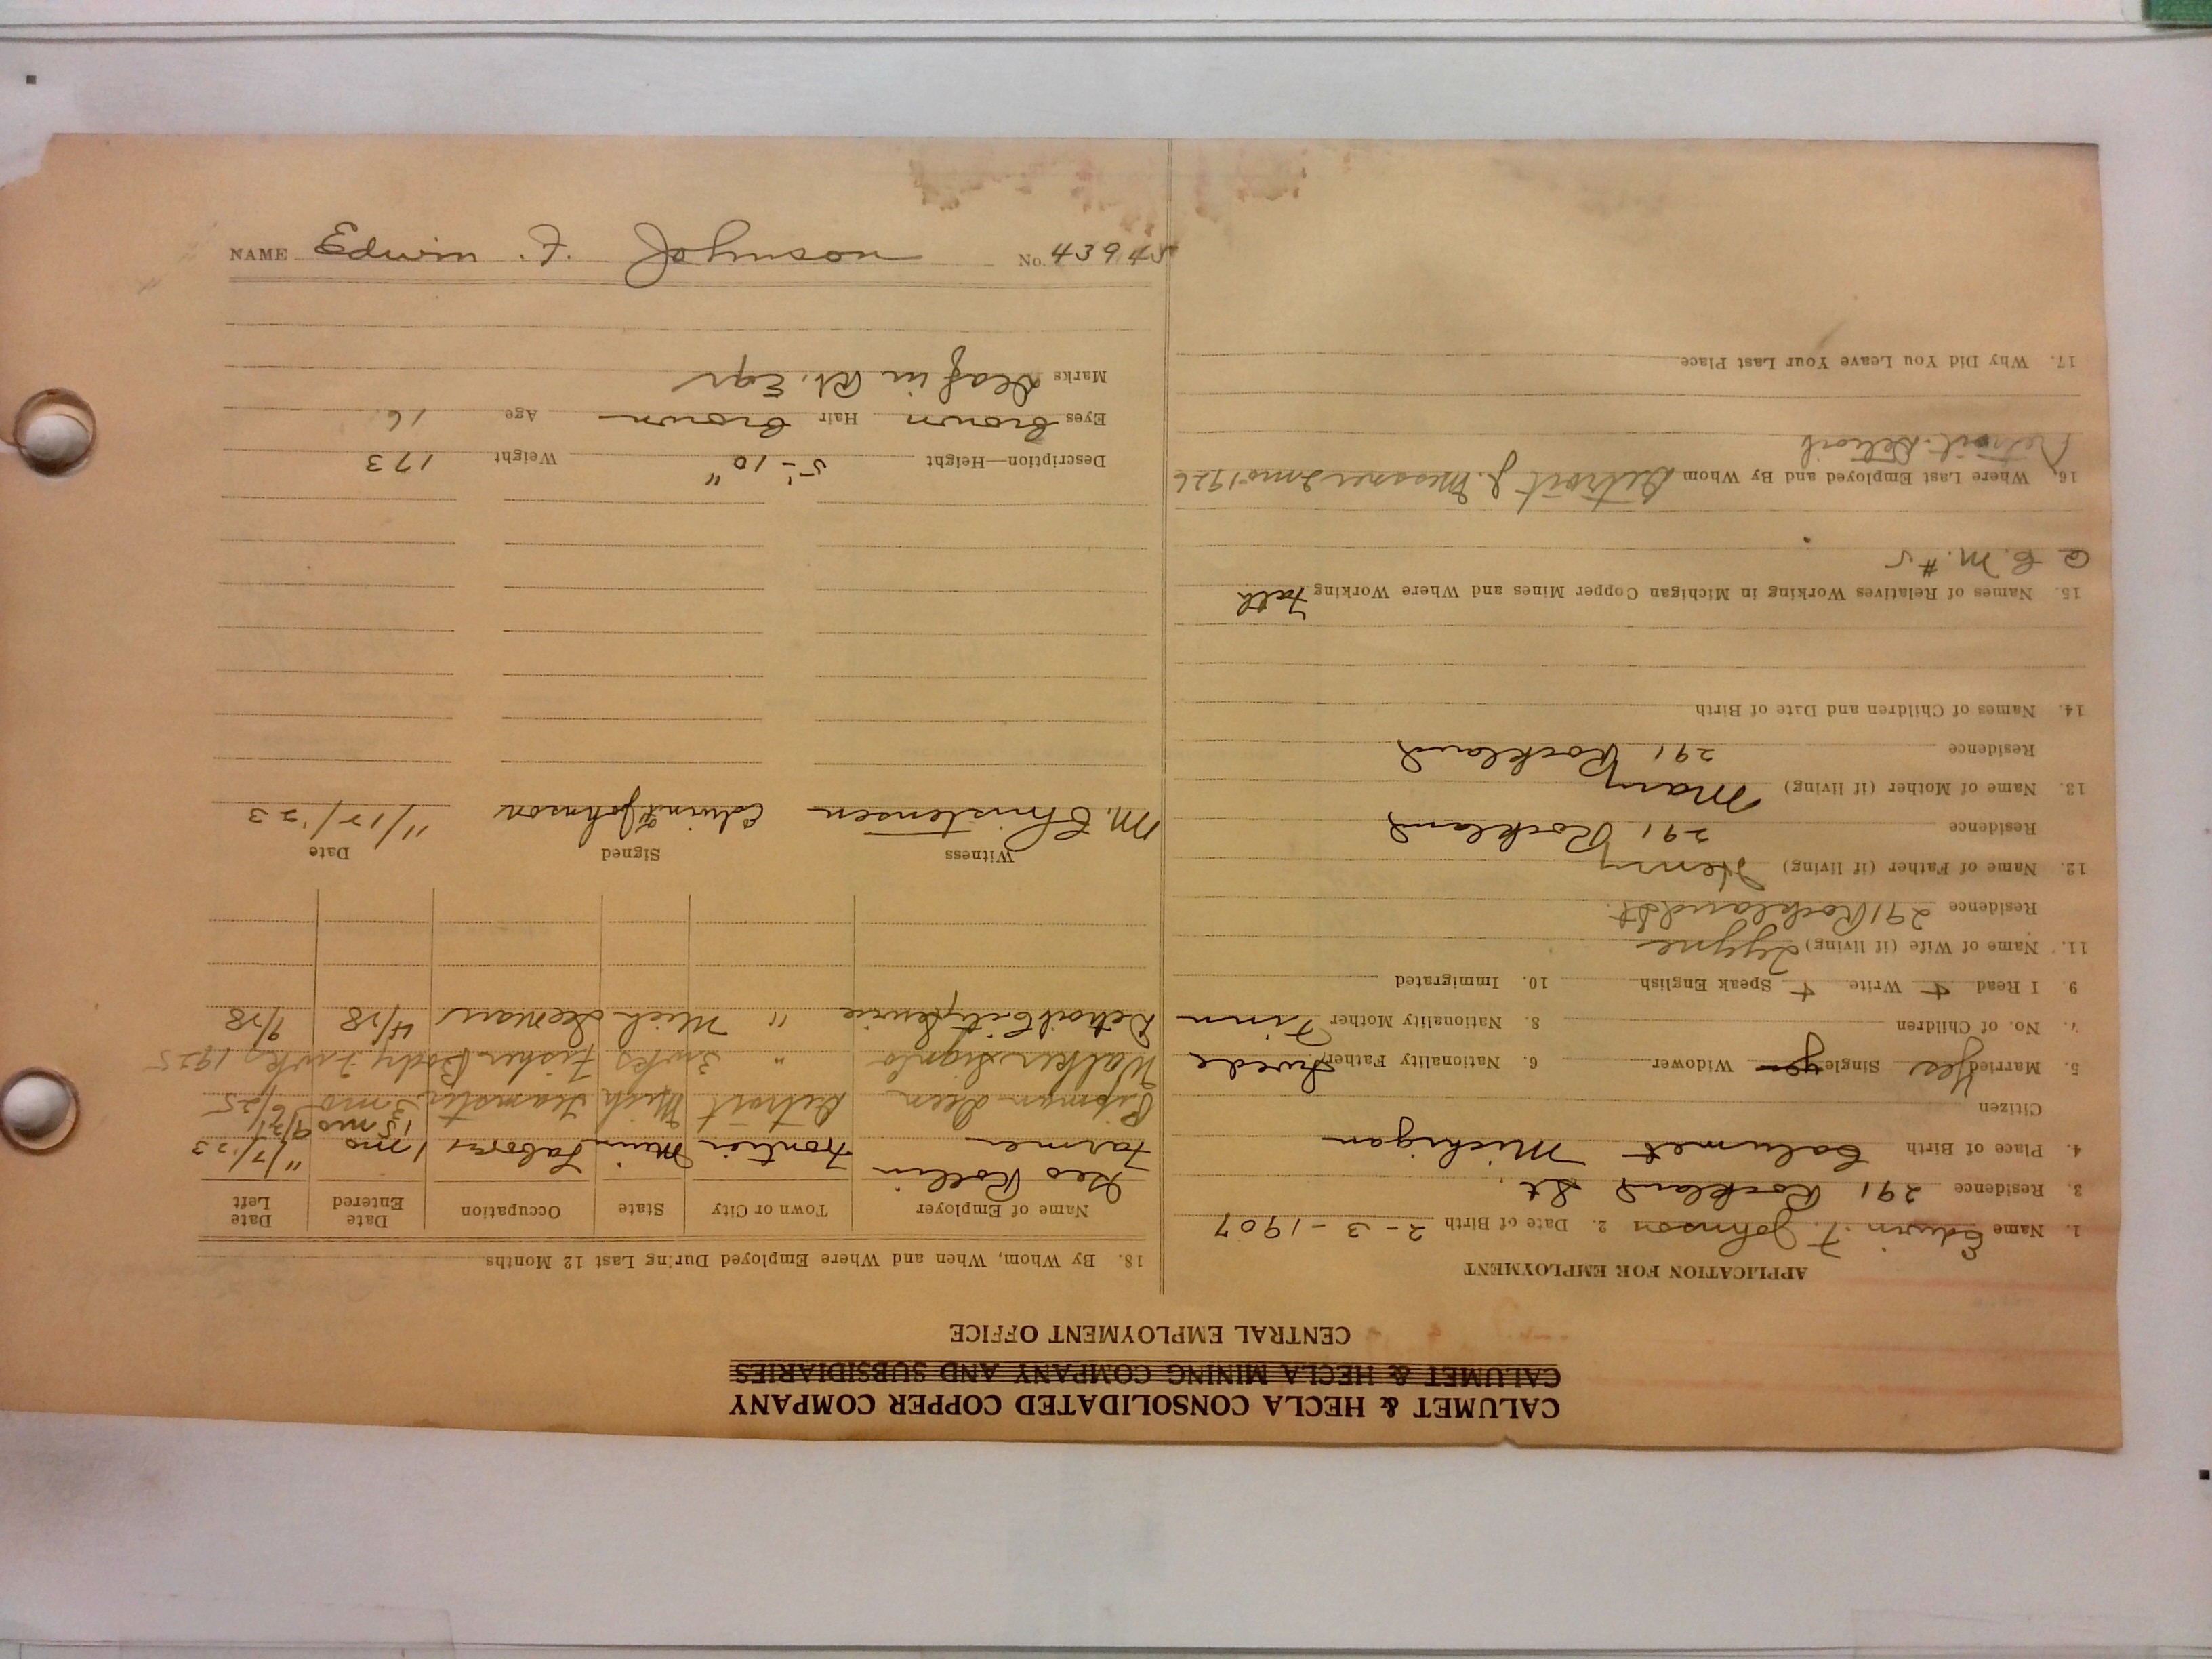 CALUMET & HECLA CONSOLIDATED COPPER COMPANY
CALUMET & HECLA MINING COMPANY AND SUBSIDIARIES
CENTRAL EMPLOYMENT OFFICE
APPLICATION FOR EMPLOYMENT
1. Name Edwin F. Johnson 2. Date of Birth 2-3-1907
3. Residence 291 Rockland St.
4. Place of Birth Calumet Michigan
Citizen
5. Married Yes Single yes Widower 6. Nationality Father Swede
7. No. of Children 8. Nationality Mother Finn
9 I Read + Write + Speak English 10. Immigrated
11. Name of Wife (if living)
Residence 291 Rockland St.
12. Name of Father (if living) Henry
Residence 291 Rockland
13. Name of Mother (if living) Mary
Residence 291 Rockland
14. Names of Children and Date of Birth
15. Names of Relatives Working in Michigan Copper Mines and Where Working Fath
@ C. M. #5
16. Where Last Employed and By Whom Detroit J. Messner 2 mo 1926
Detroit
17. Why Did You Leave Your Last Place
18. By Whom, When and Where Employed During Last 12 Months
Name of Employer Town or City State Occupation Date Entered Date Left
Geo Rollin
Farmer Frontier Minn Laborer 1 mo 11/7/23
Detroit Mich Teamster 3 mo 6/25
Walker " 3 wks Fisher Body 2 wks 1925
Detroit City " Mich 4/28 9/28
Witness Signed Date
M. Christensen Edwin F Johnson 11/15/'23
Description—Height 5'-10" Weight 173
Eyes Brown Hair Brown Age 16
Marks Deaf in Rt. Ear
NAME Edwin F. Johnson No. 43945